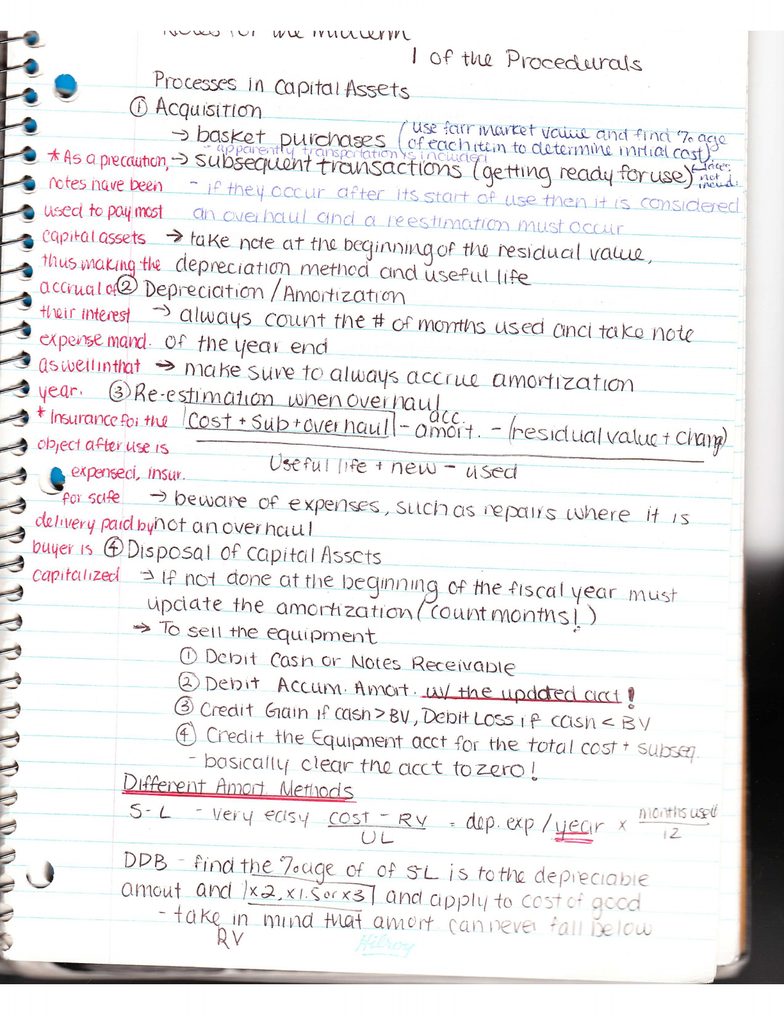 Notes for the midterm
1 of the Procedurals
Processes in Capital Assets
① Acquisition
→ basket purchases (use fair market value and find %age
of each item to determine initial cost)
- apparently transportation is included
→ subsequent transactions (getting ready for use)
not
includ.
- if they occur after its start of use then it is considered
an overhaul and a reestimation must occur
→ take note at the beginning of the residual value,
depreciation method and useful life
② Depreciation/Amortization
→ always count the # of months used and take note
of the year end
→ make sure to always accrue amortization
③ Re-estimation when overhaul
Cost + Sub + overhaul - acc. amort. - (residual value + change)
Useful life + new - used
→ beware of expenses, such as repairs where it is
not an overhaul
④ Disposal of Capital Assets
→ If not done at the beginning of the fiscal year must
update the amortization (count months!)
→ To sell the equipment
① Debit Cash or Notes Receivable
② Debit Accum. Amort. w/ the updated acct!
③ Credit Gain if cash > BV, Debit Loss if cash < BV
④ Credit the Equipment acct for the total cost + subseq.
- basically clear the acct to zero!
* As a precaution,
notes have been
used to pay most
capital assets
thus making the
accrual of
their interest
expense mand.
as well in that
year.
* Insurance for the
object after use is
expensed, insur.
for safe
delivery paid by
buyer is
capitalized
Different Amort. Methods
S-L - very easy cost - RV = dep. exp / year x months used
UL 12
DDB - find the %age of of S-L is to the depreciable
amout and x2, x1.5 or x3 and apply to cost of good
- take in mind that amort can never fall below
RV
Hilroy